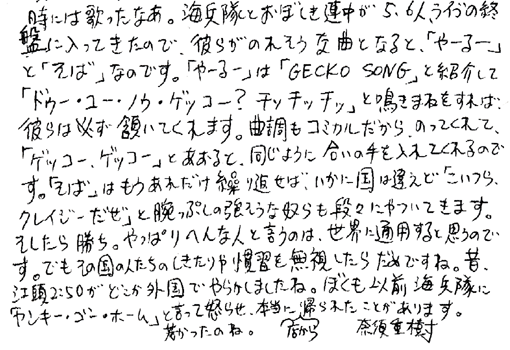 時には歌ったなあ。海兵隊とおぼしき連中が5、6人ライブの終
盤に入ってきたので、彼らがのれそうな曲となると、「やーるー」
と「そば」なのです。「やーるー」は「GECKO SONG」と紹介して
「ドゥー・ユー・ノウ・ゲッコー？ チッチッチッ」と鳴きまねをすれば、
彼らは必ず頷いてくれます。曲調もコミカルだから、のってくれて、
「ゲッコー、ゲッコー」とあおると、同じように合いの手を入れてくれるので
す。「そば」はもうあれだけ繰り返せば、いかに国は違えど「こいつら、
クレイジーだぜ」と腕っぷしの強そうな奴らも段々にやついてきます。
そしたら勝ち。やっぱりへんな人と言うのは、世界に通用すると思うので
す。でもその国の人たちのしきたりや慣習を無視したらだめですね。昔、
江頭2:50がどこか外国でやらかしましたね。ぼくも以前海兵隊に
「ヤンキー・ゴー・ホーム」と言って怒らせ、本当に帰られたことがあります。
若かったのね。 奈須重樹